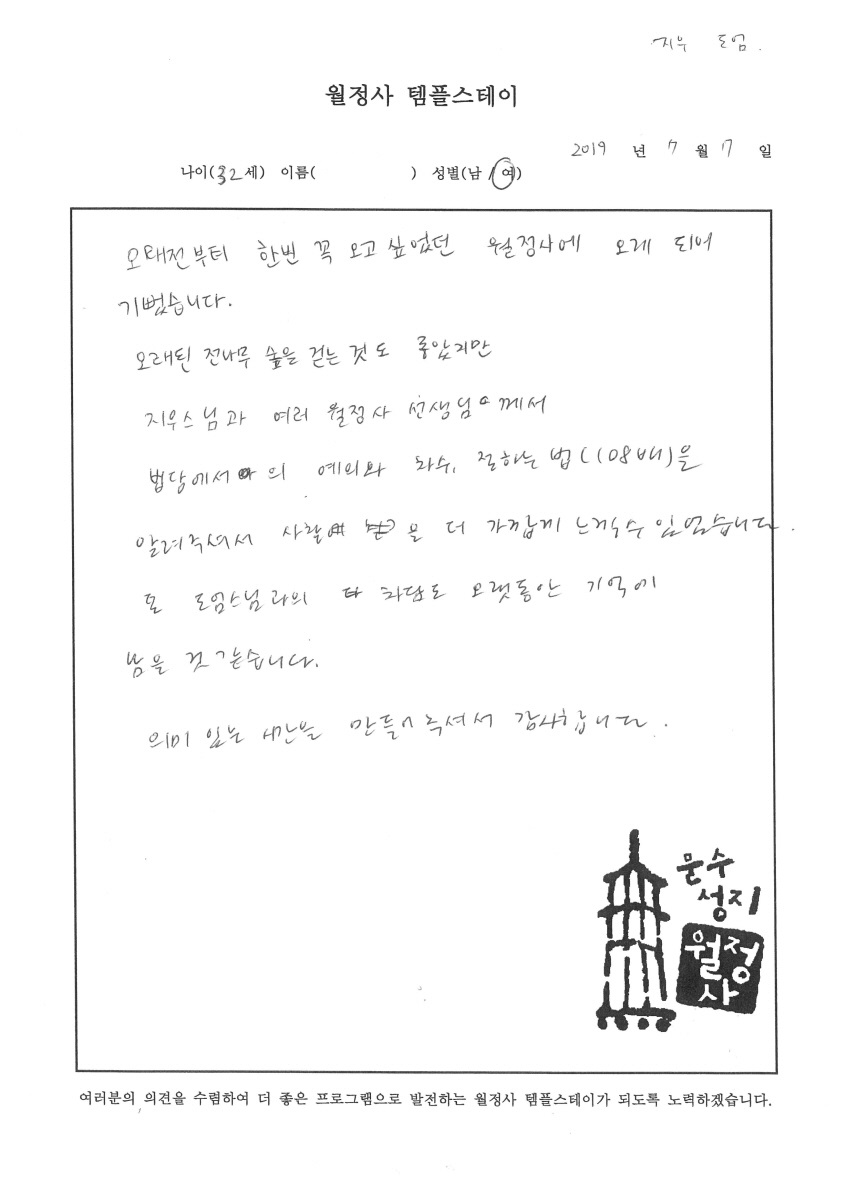 지우 도엄.
월정사 템플스테이
2019 년 7 월 17 일
나이(32세) 이름( ) 성별(남/여)
오래전부터 한번 꼭 오고 싶었던 월정사에 오게 되어
기뻤습니다.
오래된 전나무 숲을 걷는 것도 좋았지만
지우스님과 여러 월정사 선생님께서
법당에서의 예의와 차수, 절하는 법(108배)을
알려주셔서 사찰을 더 가깝게 느낄수 있었습니다.
또 도엄스님과의 차담도 오랫동안 기억에
남을 것 같습니다.
의미 있는 시간을 만들어 주셔서 감사합니다.
문수
성지
월정
사
여러분의 의견을 수렴하여 더 좋은 프로그램으로 발전하는 월정사 템플스테이가 되도록 노력하겠습니다.